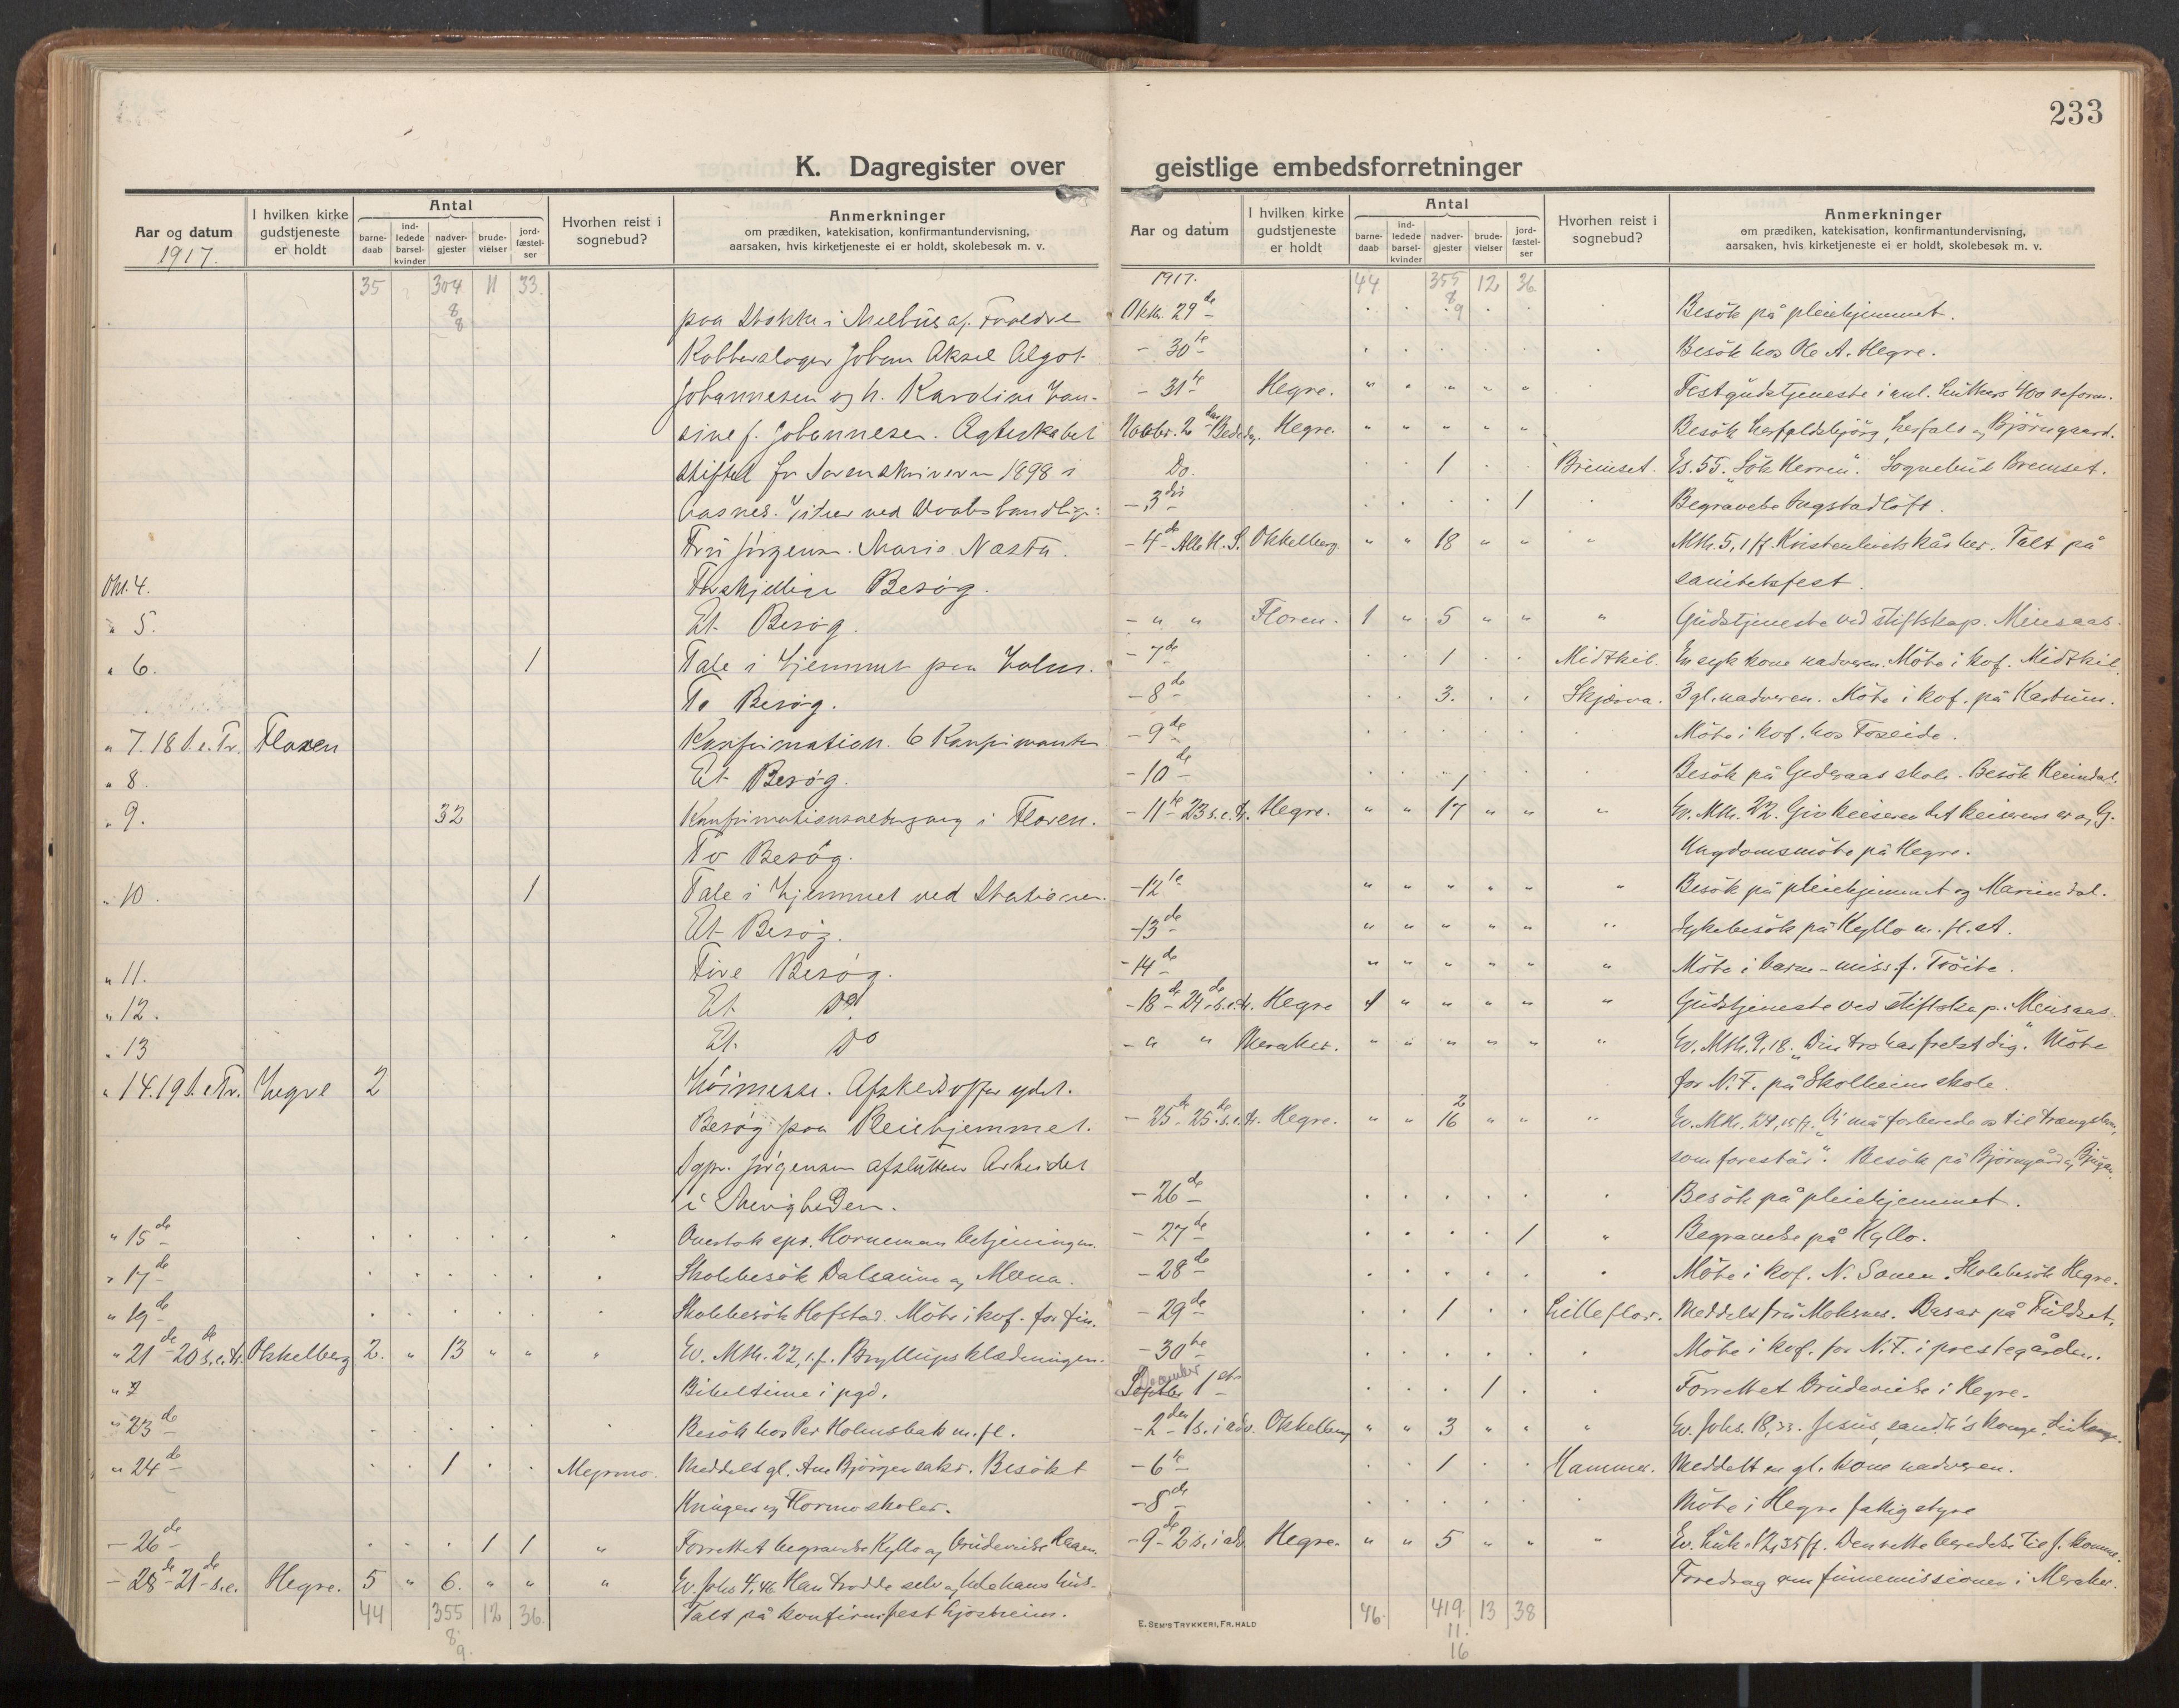 233
K. Dagregister over geistlige embedsforretninger
Aar og datum 1917.
I hvilken kirke gudstjeneste er holdt
Antal
barnedaab
indledede barselkvinder
nadvergjester
brudevielser
jordfæstelser
Hvorhen reist i sognebud?
Anmerkninger
om prædiken, katekisation, konfirmantundervisning,
aarsaken, hvis kirketjeneste ei er holdt, skolebesøk m. v.
35 304 11 33.
8
8
paa Stokke i Melhus af Forældre
Kobberslager Johan Aksel Algot
Johannesen og h. Karoline
f. Johannesen. Ægteskabet
stiftet for Sorenskriveren 1898 i
Fru Jørgensen. Marie Næsta.
Okt. 4. Forskjellige Besøg.
" 5. Et Besøg.
" 6. 1 Tale i Hjemmet paa
To Besøg.
" 7. 18 S. e. Tr. Floren Konfirmation. 6 Konfirmanter
" 8. Et Besøg.
" 9. 32 Konfirmationsaltergang i Floren.
To Besøg.
" 10. 1 Tale i Hjemmet ved Stationen.
Et Besøg.
" 11. Fire Besøg.
" 12. Et Do
" 13 Et Do
" 14. 19 S. e. Tr. Hegre 2 Höimesse. Afskedsoffer ydet.
Besøg paa Pleiehjemmet.
Sgpr. Jørgensen afslutter Arbeidet
i Menigheden.
" 15de Overtok spr. Horneman betjeningen.
" 17de Skolebesök Dalsaune og Meena.
" 19de Skolebesök Hofstad. Möte i kof. for fin.
" 21de 20de s. e. tr. Okkelberg 2. " 13 " " " Ev. Mth. 22, 1 f. Bryllupsklædningen.
" " Bibeltime i pgd.
" 23de Besök hos Per Holmsbak m. fl.
" 24de 1 Mejrmo. Meddelt gl. Ane Björgen sakr. Besökt
og Flormo skoler.
- 26de 1 1 " Forrettet begravelse Kyllo og brudevielse
- 28de 21de s. e. Hegre. 5 " 6. " " " Ev. Johs 4, 46 Han trodde selv og hele hans hus.
44 355 12 36. Talt på konfirm.fest
8
9.
Aar og datum
I hvilken kirke gudstjeneste er holdt
Antal
barnedaab
indledede barselkvinder
nadvergjester
brudevielser
jordfæstelser
Hvorhen reist i sognebud?
Anmerkninger
om prædiken, katekisation, konfirmantundervisning,
aarsaken, hvis kirketjeneste ei er holdt, skolebesøk m. v.
1917. 44 355 12 36
8
9
Oktr. 29de Besök på pleiehjemmet.
- 30te Besök hos Ole A. Hegre.
- 31te Hegre. " " " " " Festgudstjeneste i anl. Luthers 400 reform.
Novbr. 2den Bededg. Hegre. " " " " " Besök og Björngaard.
Do. 1 Bremset. Es. 55. "Sök Herren". Sognebud Bremset.
- 3die 1 Begravelse
- 4de Alle H. S. Okkelberg " " 18 " " " Mth. 5, 1 ff. Kristenlivets kår her. Talt på
sanitetsfest.
- " " Floren. 1 " 5 " " " Gudstjeneste ved stiftskap. Meisaas.
- 7de 1 Midtkil. En syk kone nadveren. Möte i kof. Midtkil.
- 8de 3. Skjærva. 3 gl. nadveren. Möte i kof. på
- 9de Möte i kof. hos Foseide.
- 10de 1 Besök på Gederaas skole. Besök
- 11te 23 s. e. tr. Hegre. " " 17 " " " Ev. Mth. 22. Giv keiseren det keiserens er og G.
Ungdomsmöte på Hegre.
- 12te " " " " " " Besök på pleiehjemmet og Mariendal.
- 13de " " " " " " Sykebesök på Kyllo m. fl. st.
- 14de " " " " " " Möte i barne-miss. f.
- 18de 24de s. e. tr. Hegre 1 " " " " " Gudstjeneste ved stiftskap. Meisaas.
- " " Meraker. " " " " " " Ev. Mth. 9, 18. "Din tro har frelst dig". Möte
for N. F. på Skolheim skole.
- 25de 25de s. e. tr. Hegre. " " 16 2 " " " Ev. Mth. 24, 15 ff. "Vi må forberede os til trængslerne,
som forestår". Besök på Björngård og
- 26de Besök på pleiehjemmet.
- 27de 1 " Begravelse på Kyllo.
- 28de Möte i kof. N. Skolebesök Hegre.
- 29de 1 Lilleflor. Meddelt fru Moksnes. Basar på Fuldset.
- 30te Möte i kof. for N. F. i prestegården.
Septbr December 1ste 1 Forrettet brudevielse i Hegre.
- 2den 1 s. i adv. Okkelberg " " 3 " " " Ev. Johs. 18, 33. Jesus, sandh's konge, din konge.
- 6te 1 Hammer. Meddelt en gl. kone nadveren.
- 8de Möte i Hegre fattigstyre
- 9de 2 s. i adv. Hegre. " " 5 " " " Ev. Luk. 12, 35 ff. Den rette beredelse til J. komme.
Foredrag om finnemissionen i Meraker.
46. 419. 13 38
11.
16
E. SEM'S TRYKKERI, FR.HALD